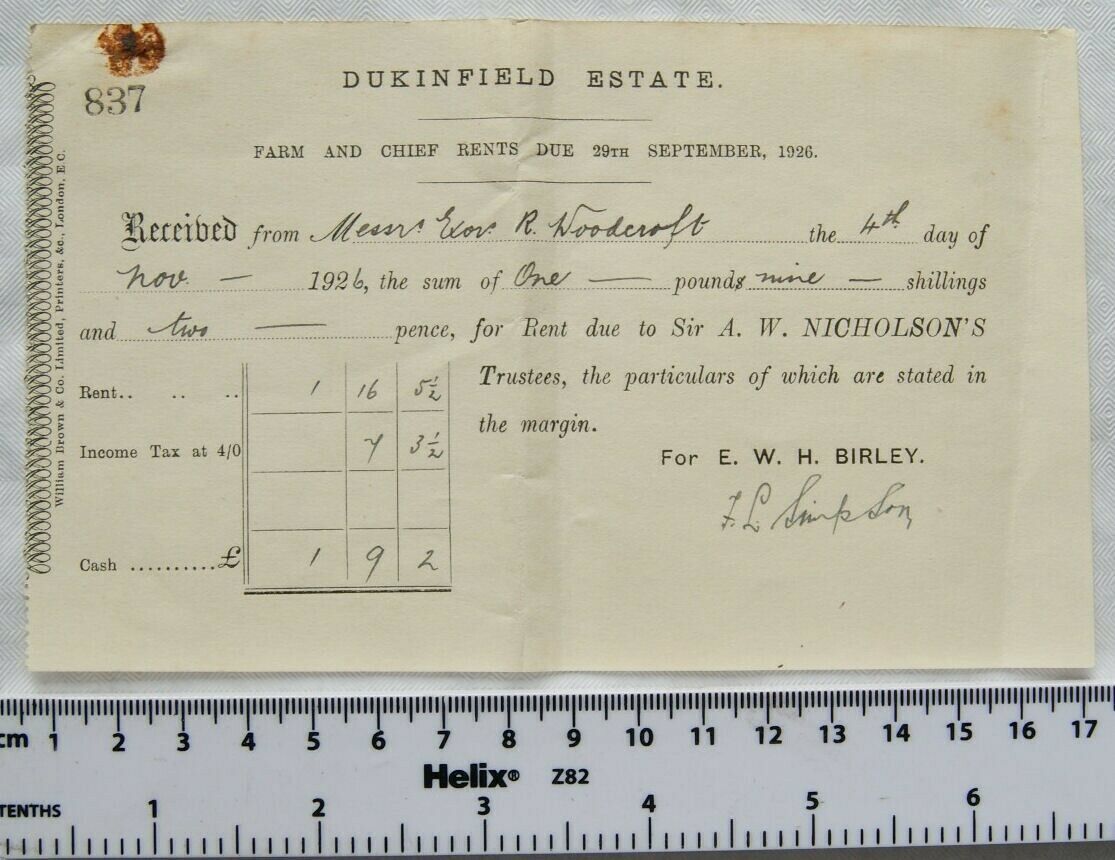 DUKINFIELD ESTATE.
837
FARM AND CHIEF RENTS DUE 29TH SEPTEMBER, 1926.
Received from Messrs Exors R. Woodcroft the 4th day of
Nov. — 1926, the sum of One — pounds nine — shillings
and two — pence, for Rent due to Sir A. W. NICHOLSON'S
Trustees, the particulars of which are stated in
the margin.
Rent.. .. .. 1 16 5½
Income Tax at 4/0 7 3½
Cash ..........£ 1 9 2
For E. W. H. BIRLEY.
F. L. Simpson
William Brown & Co. Limited, Printers, &c., London, E C.
cm 1 2 3 4 5 6 7 8 9 10 11 12 13 14 15 16 17
Helix® Z82
TENTHS 1 2 3 4 5 6